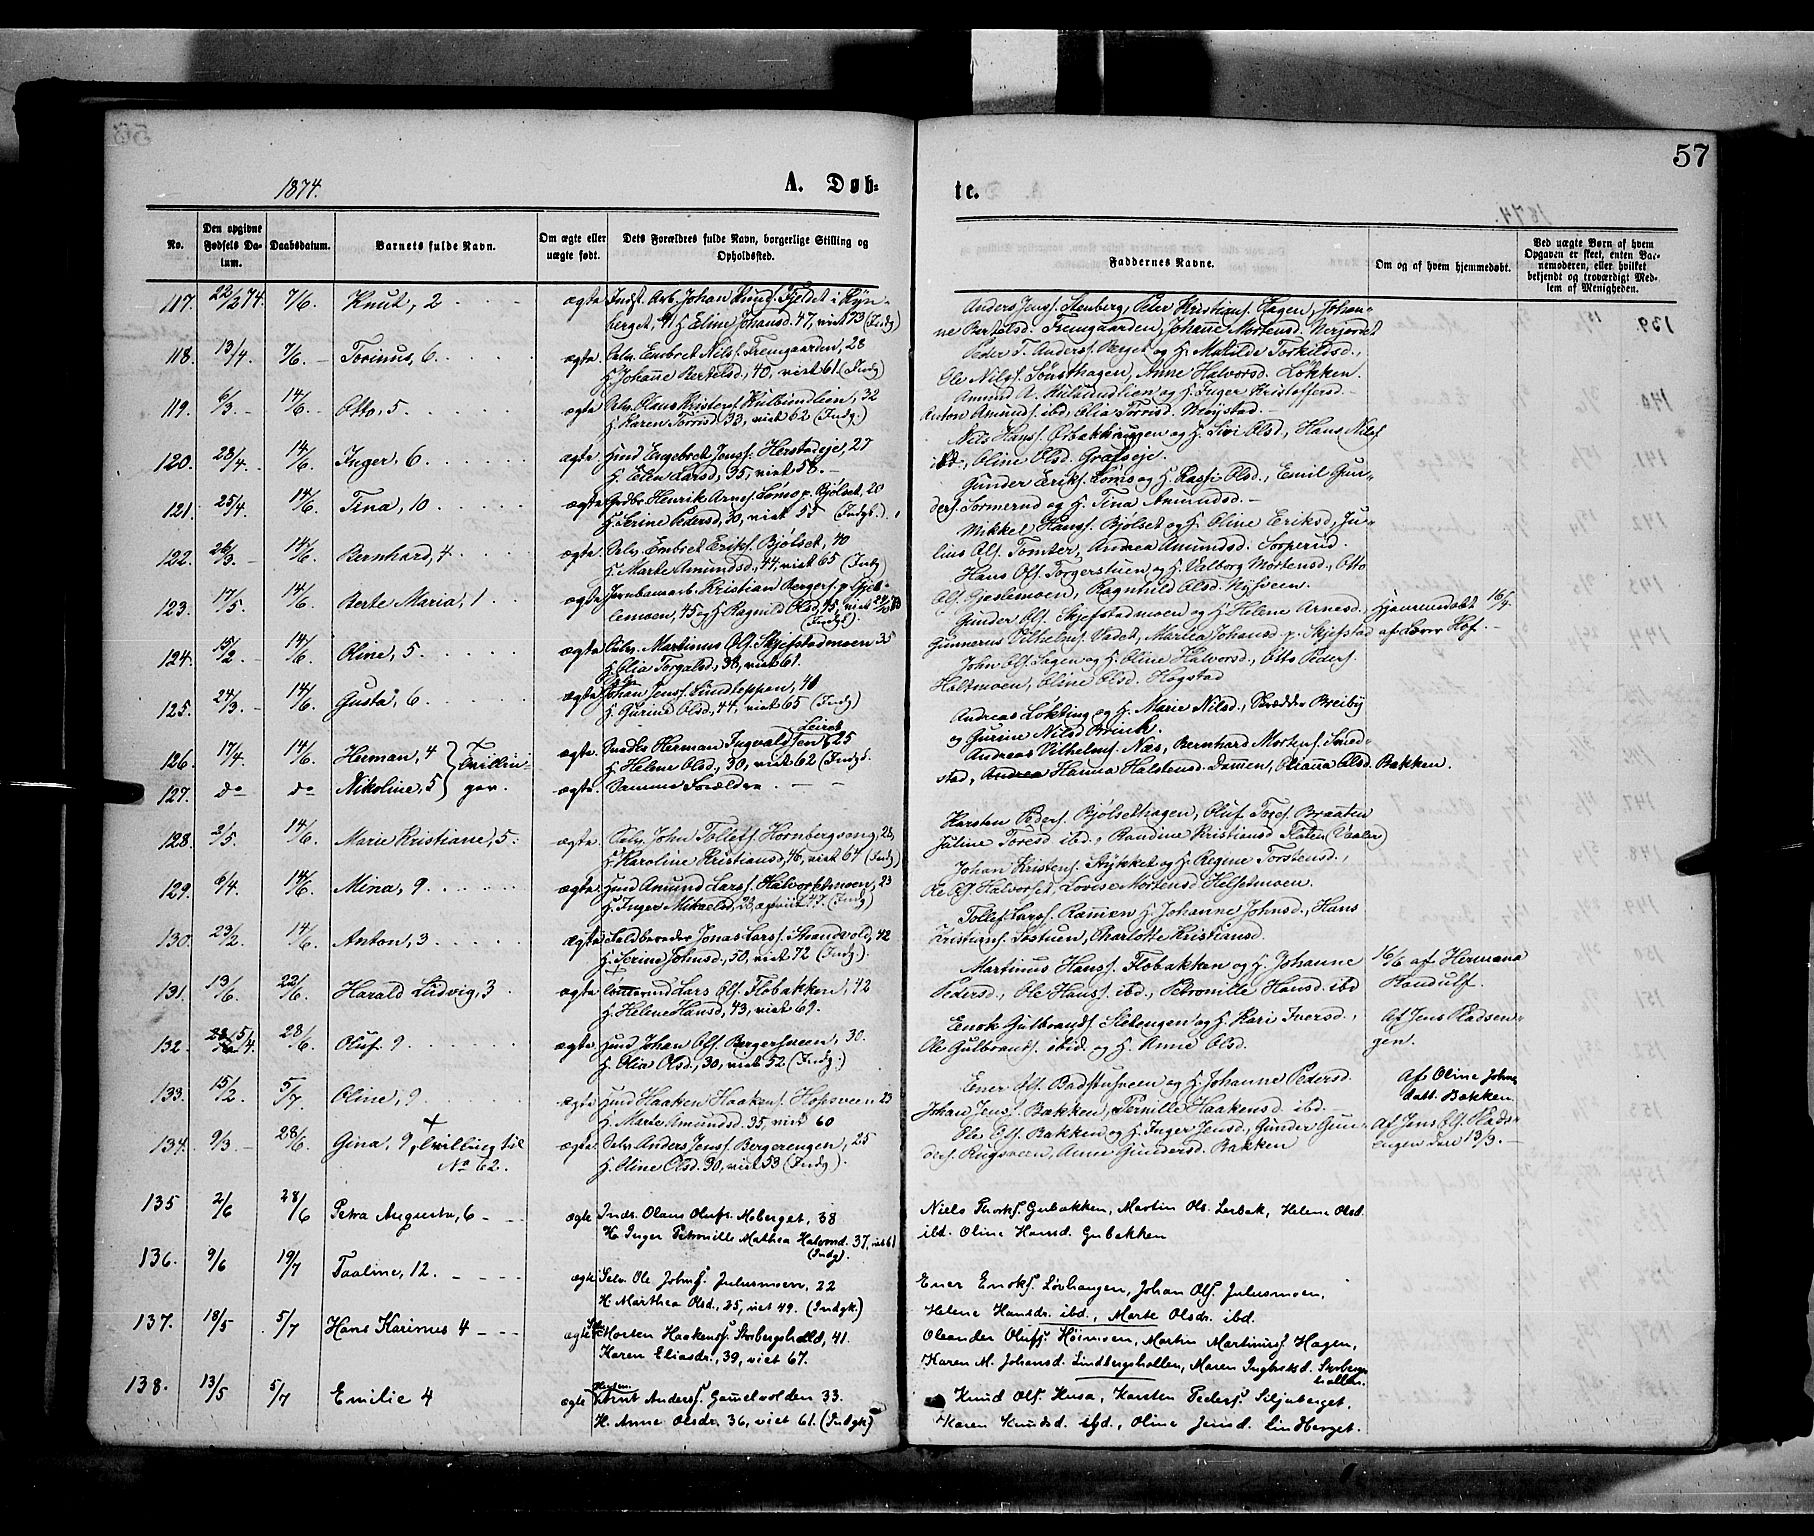 57
1874.
A. Døb=
te.
No.
Den opgivne Fødsels Datum.
Daabsdatum.
Barnets fulde Navn.
Om ægte eller uægte født.
Dets Forældres fulde Navn, borgerlige Stilling og Opholdssted.
Faddernes Navne.
Om og af hvem hjemmedøbt.
Ved uægte Børn af hvem Opgaven er skeet, enten Barnemoderen, eller hvilket bekjendt og troværdigt Medlem af Menigheden.
117. 22/2 74. 7/6. Knut, 2 ægte Indst. Arb. Johan Knuds. Fjeldet i Ryn-
berget, 41 H. Eline Johansd. 47, viet 73 (Indg)
Anders Jenss. Stenberg, Peder Kristians. Hagen, Johan-
ne Bertelsd. Fremgaarden, Johanne Mortensd. Berjordet
118. 13/4. 7/6. Torinus, 6. ægte Selv. Embret Nilss. Fremgaarden, 28
H. Johanne Bertelsd., 40, viet 61. (Indg)
Peder T. Anderss. Berget og H. Matilde Torkildsd.,
Ole Nilss. Sørsthagen, Anne Halvorsd. Løkken.
119. 6/3. 14/6. Otto, 5. ægte Selv. Olaus Kristens. Kulbundlien, 32
H. Karen Torrisd. 33, viet 62 (Indg.)
Amund A. Kulbundlien og H. Inger Kristoffersd.
Anton Amunds. ibd, Olia Torrisd. Myrstad.
120. 23/4. 14/6. Inger, 6. ægte Husmd Engebret Jenss. Herstadeje, 27
H. Eden Larsd, 35, viet 58.
Nils Hanss. Orbakhaugen og H. Sivi Olsd, Hans Nilss.
ibd, Oline Olsd. Grafseje.
121. 25/4. 14/6. Tina, 10 ægte Grdbr. Henrik Arness. Loms p. Bjølset, 20
H. Eline Pedersd, 30, viet 55 (Indgk.)
Gunder Eriks. Loms og H. Kassi Olsd, Emil Gun-
ders. Sormerud og H. Tina Amundsd.
122. 26/3. 14/6. Bernhard, 4 ægte Selv. Embret Eriks. Bjølset, 40
H. Marte Amundsd., 44, viet 65 (Indg)
Mikkel Hanss. Bjølset og H. Oline Eriksd, Ju-
lius Ols. Tomter, Andrea Amundsd. Sorperud.
123. 17/5. 14/6. Berte Maria, 1 ægte Jernbanearb. Kristian Bergers. p. Gjet-
lemoen, 45 og H. Ragnild Olsd, 45, viet 24/10 73
(Indgk.)
Hans Ols. Torgerstuen og H. Valborg Mortensd., Otto
Ols. Gjeslemoen, Ragnhild Olsd. Nysveen.
124. 15/2. 14/6. Oline, 5. ægte Selv. Martinus Ols. Skjefstadmoen 35
H. Olia Torgalsd, 38, viet 61.
Gunder Ols. Skjefstadmoen og H. Helene Arnesd.,
Gunnerus Vilhelms. Vadet, Martea Johansd. p. Skjefstad
Hjemmedøbt 16/4.
af Lærer Hof.
125. 24/3. 14/6. Gusta, 6. ægte Selv Johan Jenss. Lundteppen, 41
H. Gurine Olsd, 44, viet 65 (Indg)
John Ols. Sagen og H. Oline Halvorsd., Otto Peders.
Holtmoen, Oline Olsd. Hogstad
126. 17/4. 14/6. Herman, 4 } Tvillin- ægte Smeden Herman Ingvalds. Leiret, 25
H. Helene Olsd., 30, viet 62 (Indgk.
Andreas Lokting og H. Marie Nilsd., Skrædder Breiby
og Gurine Nilsd Brink.
127. do do Nikoline, 5 } ger. ægte Samme Forældre
Andreas Vilhelms. Næs, Bernhard Mortens. Smed-
stad, Andrea Hanna Halstensd. Dammen, Olianna Olsd. Bakken.
128. 2/5. 14/6. Marie Kristiane, 5. ægte Selv. John Tollefs. Hornbergseng, 28
H. Karoline Kristiansd, 46, viet 64 (Indg)
Karsten Peders. Bjølsethagen, Oluf Tores. Braaten
Jaline Toresd ibd., Randine Kristiansd Flaten (Vaaler)
129. 6/4. 14/6. Mina, 9. ægte Husmd Amund Larss. Halvorsetmoen, 23
H. Inger Mikaelsd, 28, viet 47. (Indg)
Johan Kristens. Stykket og H. Regine Torstensd.,
Ole Ols. Halvorset, Lovise Mortensd Helsetmoen.
130. 23/2. 14/6. Anton, 3. ægte Feldbereder Jonas Larss. Strandvold, 42
H. Serine Johnsd., 50, viet 72 (Indg.)
Tollef Larss. Rammen H. Johanne Johnsd., Hans
Kristians. Sostuen, Charlotte Kristiansd.
131. 13/6. 22/6. Harald Ludvig, 3. ægte Lars Ols. Flobakken, 42
H. Helene Hansd., 43, viet 69.
Martinus Hanss. Flobakken og H. Johanne
Pedersd., Ole Hanss. ibd., Petronille Hansd. ibd
16/6 af Hermana
Randulf.
132. 5/4. 28/6. Oluf. 9. ægte Husmd Johan Ols. Bergersveen, 30.
H. Olia Olsd., 30, viet 52 (Indg.)
Enok Gulbrands. Slebengen og H. Kari Iversd.,
Ole Gulbrands. ibid. og H. Anne Olsd.
Af Jens Pladsen-
gen.
133. 15/2. 5/7. Oline, 9 ægte Husmd Haaken Haakens. Hopsveen 23
H. Marte Amundsd. 35, viet 60
Ener Ols. Badstusveen og H. Johanne Pedersd.
Johan Jenss. Bakken, Pernille Haakensd ibd.
Af Oline Johns
datt. Bakken.
134. 9/3. 28/6. Gina, 9, Tvilling til ægte Selv. Anders Jenss. Bergerengen, 25
No 62. H. Oline Olsd. 30, viet 53 (Indg).
Ole Ols. Bakken og H. Inger Jensd., Gunder Gun-
ders. Rugsveen, Anne Gundersd. Bakken
Af Jens Ols. Plads-
engen den 13/3.
135 2/6 28/6 Petra Augusta, 6 ægte Inds. Olaus Olufs. Moberget, 38
H. Inger Petronille Mathea Halvorsd. 37, viet 61
(Indg).
Niels Thorks. Gubakken, Martin Ols. Lerbak, Helene Olsd
ibd. Oline Hansd. Gubakken
136. 9/6 19/7 Paaline, 12. ægte Selv. Ole Johnss. Julusmoen, 22
H. Marthea Olsd., 25, viet 49. (Indgk.)
Ener Enoks. Løvhaugen, Johan Ols. Julusmoen,
Helene Hansdr. ibd., Marte Olsdr. ibd.
137. 18/5 5/7 Hans Karinus 4 ægte Selv. Morten Haakenss. Storbergshold, 41.
Karen Eliasdr., 39, viet 67.
Oleander Olufs. Høimoen, Martin Martinuss. Hagen,
Karen M. Johansd. Lindbergshollen, Maren Ingbrtsd. Storbergs
hollen.
138. 13/5 5/7 Emilie 4 ægte Knut Anders. Gamelvolden 33.
H. Anne Olsdr. 36, viet 61. (Indgk)
Knud Ols. Husa, Karsten Peders. Siljuberget,
Karen Knudsd. ibd., Oline Jensd. Lindberget.